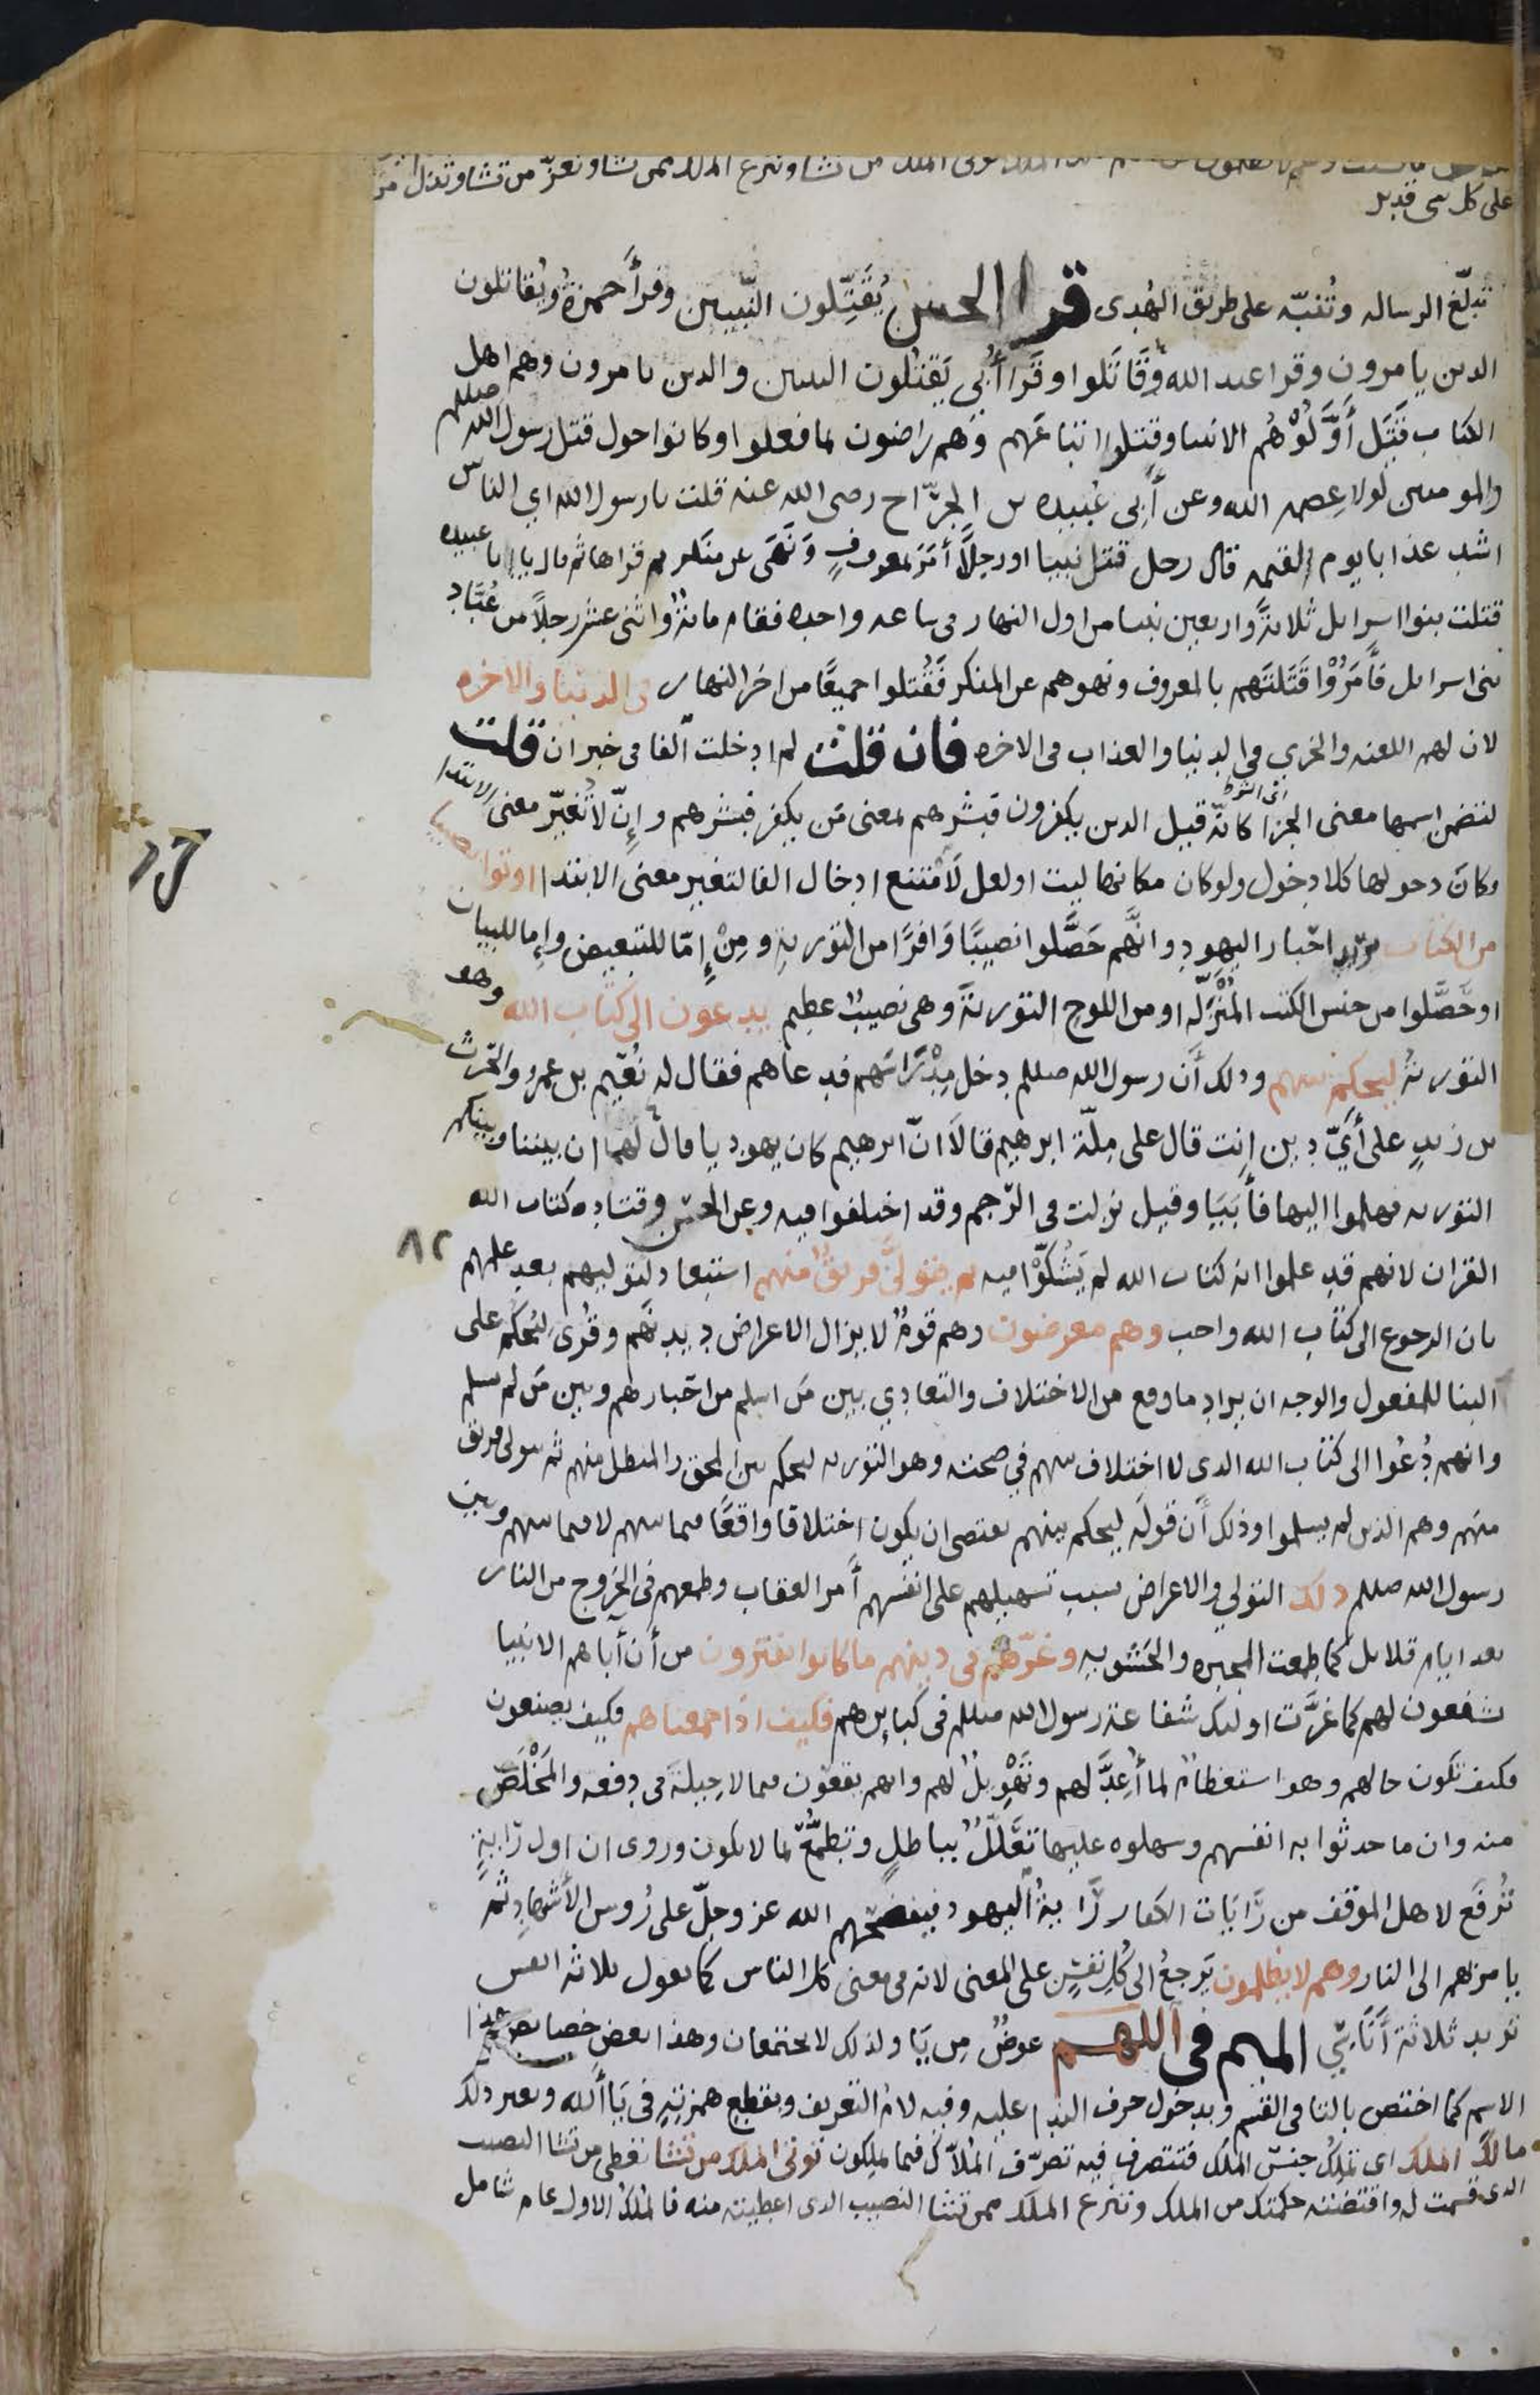 من تشا وتنزع الملك ممن تشا وتعز من تشا وتذل من
على كل شى قدير
تبلّغ الرساله وتُنبّه على طريق الهُدى قرا الحسن يُقَتِّلون النّبيين وقرأ حمزةُ ويُقاتلون
الدين يامرون وقرا عبد الله وَقَاتَلوا وقَرا أُبى يَقتلون النبيىن والدين يامرون وهم اهل
الكتاب قَتَل أَوَّلُوْهُم الانبيا وقتلوا اتباعَهم وَهم راضون لما فعلوا وكانوا حول قتل رسول الله صللم
والمومنين لولا عِصمه الله وعن أَبِى عُبيده بن الجرّاح رضى الله عنه قلت يا رسول الله اي الناس
اشد عذابا يوم القيمه قال رجل قتل نبيا او رجلًا أَمَرَ بمعروفٍ وَنَهَى عن منكر ثم قراها ثم قال يا ابا عبيده
قتلت بنوا اسرايل ثلاثةً واربعين نبيا من اول النهار فى ساعه واحده فقام مائةٌ واثنى عشر رجلاً من عُبَّاد
بنى اسرايل فأَمَرُوْا قَتَلَتَهم بالمعروف ونهوهم عن المنكر فَقُتلوا جميعًا من اخر النهار فى الدنيا والاخره
لان لهم اللعنه والخزي في الدنيا والعذاب فى الاخره فان قلت لم ادخلت الفا فى خبر ان قلت
لتضمن اسمها معنى الجزا كانّه قيل الدين يكفرون فبشرهم بمعنى مَن يكفر فبشرهم وإنّ لا تُغيّر معنى الابتدا
وكانَ دخولها كلا دخول ولو كان مكانها ليت او لعل لَامتنع ادخال الفا لتغير معنى الابتدا اوتوا نصيبا
من الكتاب يريد احبار اليهود وانَّهم حَصَّلوا نصيبًا وَافرًا من التورىةِ ومِنْ إمّا للتبعيض وإما للبيان
او حَصَّلوا من جنس الكتب المُنْزَلَه او من اللوح التورىةَ وهى نصيبٌ عظيم يدعون الى كتاب الله وهو
التورىةُ ليحكم بينهم ودلك أَن رسول الله صللم دخل مِدْرَاسَهم فدعاهم فقال له نُعَيم بن عمرو والحرث
بن زيدٍ على أَيّ دين انت قال على مِلّة ابرهيم قالَا انّ ابرهيم كان يهوديا قال لهما ان بيننا وبينكم
التورىه فهلموا اليها فأَبَيَا وقيل نزلت فى الرّجم وقد اختلفوا فيه وعن الحسن وقتاده كتاب الله
القران لانهم قد علموا انه كتاب الله لم يَشُكّوْا فيه ثم يتولّى فريقٌ منهم استبعاد لتوليهم بعد علمهم
بان الرجوع الى كتاب الله واجب وهم معرضون وهم قومٌ لا يزال الاعراض ديدنَهم وقُرى لِيُحكَم على
البنا للمفعول والوجه ان يراد ما وقع من الاختلاف والتعادي بين مَن اسلم من احبارهم وبين مَن لم يسلم
وانهم دُعُوا الى كتاب الله الدى لا اختلاف بينهم في صحته وهو التورىه ليحكم بين المحق والمبطل منهم ثم يتولى فريق
منهم وهم الذين لم يسلموا وذلك أَن قولَه ليحكم بينهم يقتضى ان يكون اختلافا واقعًا فيما بينهم لا فيما بينهم وبين
رسول الله صللم ذلك التولي والاعراض بسبب تسهيلهم على انفسهم أَمر العقاب وطمعهم فى الخروج من النار
بعد ايام قلايل كما طمعت المجبره والحَشويه وغرّهم فى دينهم ما كانوا يفترون من أَن أَباهم الانبيا
يشفعون لهم كما غرَّت اوليك شفاعة رسول الله صللم فى كبايرهم فكيف اذا جمعناهم فكيف يصنعون
فكيف تكون حالهم وهو استعظامٌ لما أُعِدَّ لهم وتَهْوِيلٌ لهم وانهم يقعون فيما لا حِيلةَ فى دفعه والمَخْلَصِ
منه وان ما حدثوا به انفسهم وسهلوه عليها تعَلُّلٌ بباطلٍ وتطمُّعٌ بما لا يكون وروى ان اول رَايةٍ
تُرفَع لاهل الموقف من رَّايَات الكفار رَّايةُ اليهود فيفضحهم الله عز وجلّ على رُوس الأَشهادِ ثم
يامرُهم الى النار وهم لا يظلمون يَرجعُ الى كُلِ نَفسٍ على المعنى لانه فى معنى كل الناس كما يقول ثلاثه انفس
تريد ثلاثة أَنَاسِيّ الميم فى اللهم عوضٌ مِن يَا ولذلك لا يجتمعان وهذا بعض خصايص هذا
الاسم كما اختص بالتا فى القَسَم وبدخول حرف الندا عليه وفيه لام التعريف وبقطع همزته فى يَا أَلله وبغير دلك
مالكَ الملك اى تملك جنس المُلك فتتصرف فيه تصرّف المُلّاك فيما يملكون توتى الملك من تشا تعطى من تشا النصيب
الدى قسمت له واقتضته حكمتك من الملك وتنزع الملك ممن تشا النصيب الدى اعطيته منه فالملكُ الاول عام شامل
اى الشرط
٨٢